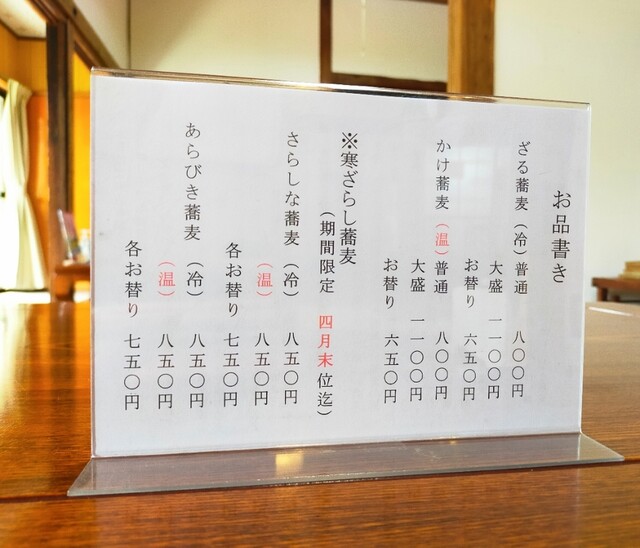 お品書き
ざる蕎麦（冷）普通　八〇〇円
大盛　一一〇〇円
お替り　六五〇円
かけ蕎麦（温）普通　八〇〇円
大盛　一一〇〇円
お替り　六五〇円
※寒ざらし蕎麦
（期間限定　四月末位迄）
さらしな蕎麦（冷）　八五〇円
（温）　八五〇円
各お替り　七五〇円
あらびき蕎麦（冷）　八五〇円
（温）　八五〇円
各お替り　七五〇円